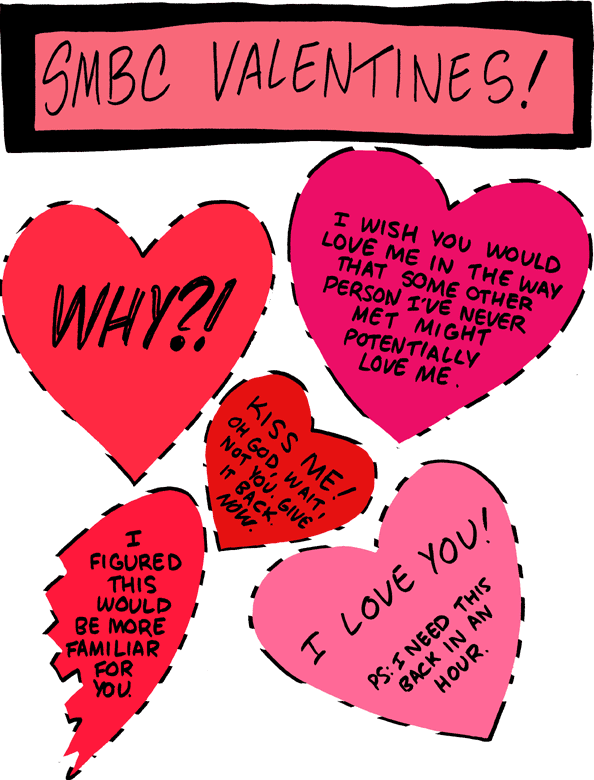 SMBC VALENTINES!
WHY?!
I WISH YOU WOULD
LOVE ME IN THE WAY
THAT SOME OTHER
PERSON I'VE NEVER
MET MIGHT
POTENTIALLY
LOVE ME.
KISS ME!
OH GOD, WAIT,
NOT YOU. GIVE
IT BACK.
NOW.
I
FIGURED
THIS
WOULD
BE MORE
FAMILIAR
FOR
YOU.
I LOVE YOU!
PS: I NEED THIS
BACK IN AN
HOUR.